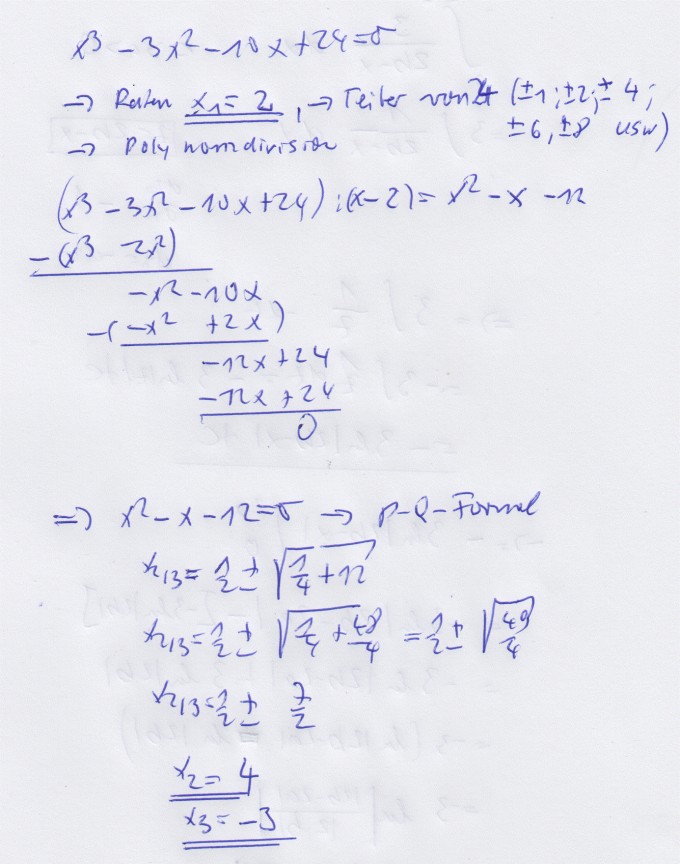 x³ - 3x² - 10x + 24 = 0
→ Raten x₁ = 2, → Teiler von 24 (±1; ±2; ±4;
±6, ±8 usw)
→ Polynomdivision
(x³ - 3x² - 10x + 24) : (x - 2) = x² - x - 12
-(x³ 2x²)
-x² - 10x
-(-x² + 2x)
-12x + 24
-12x + 24
0
⇒ x² - x - 12 = 0 → P-Q-Formel
x₂,₃ = 1/2 ± √(1/4 + 12)
x₂,₃ = 1/2 ± √(1/4 + 48/4) = 1/2 ± √(49/4)
x₂,₃ = 1/2 ± 7/2
x₂ = 4
x₃ = -3